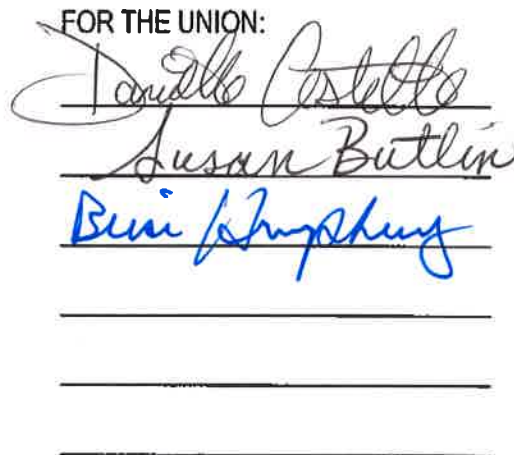 FOR THE UNION:
Danielle Costello
Susan Butlin
Humphrey